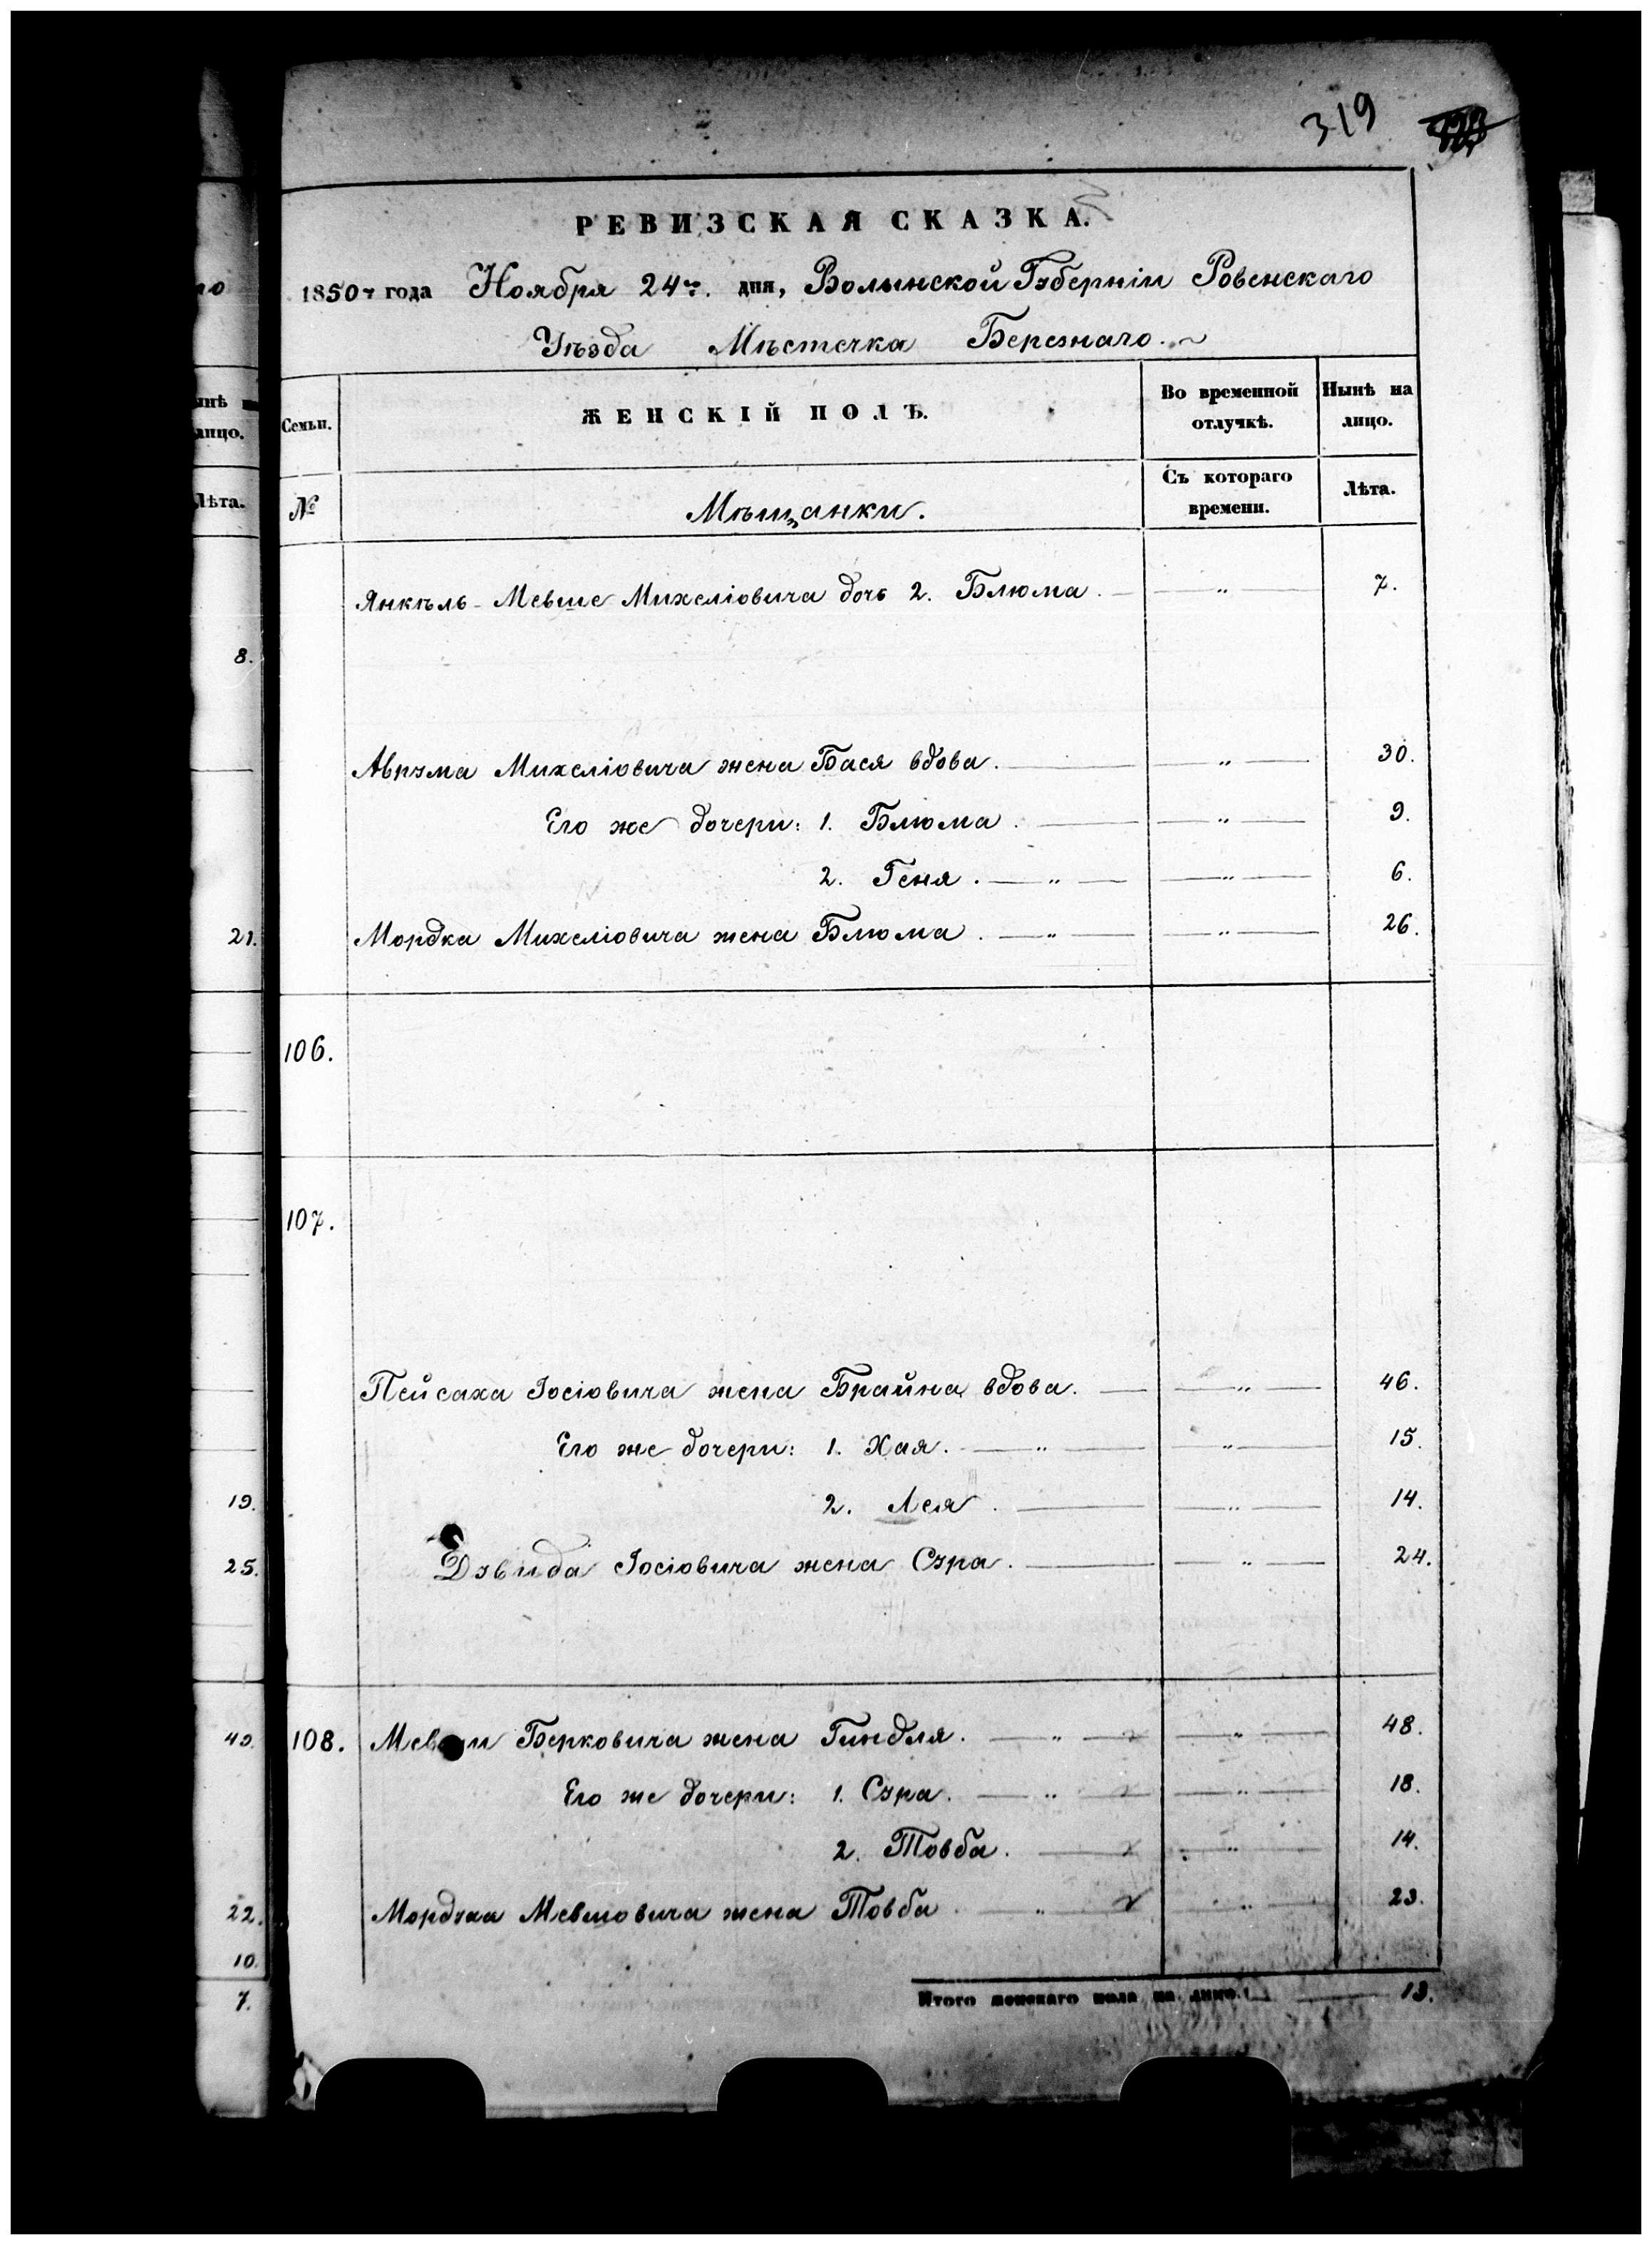 319
РЕВИЗСКАЯ СКАЗКА.
1850 года Ноября 24го. дня, Волынской Губерніи Ровенскаго
Уѣзда Мѣстечка Березнаго.
Семьи.
ЖЕНСКІЙ ПОЛЪ.
Во временной отлучкѣ.
Нынѣ на лицо.
№
Мѣщанки.
Съ котораго времени.
Лѣта.
Янкѣль-Мевше Михеліовича дочь 2. Блюма. — „ — 7.
Аврума Михеліовича жена Бася вдова. — „ — 30.
Его же дочери: 1. Блюма. — „ — 9.
2. Геня. — „ — „ — 6.
Мордка Михеліовича жена Блюма. — „ — „ — 26.
106.
107.
Пейсаха Іосіовича жена Брайна вдова. — „ — 46.
Его же дочери: 1. Хая. — „ — „ — 15.
2. Лея. — „ — 14.
Дувида Іосіовича жена Сура. — „ — 24.
108. Мевши Берковича жена Гиндля. — „ — „ — 48.
Его же дочери: 1. Сура. — „ — „ — 18.
2. Товба. — „ — 14.
Мордуха Мевшовича жена Товба. — „ — „ — 23.
Итого женскаго пола на лицо. — 13.
нѣ
лицо.
Лѣта.
8.
21.
19.
25.
49.
22.
10.
7.